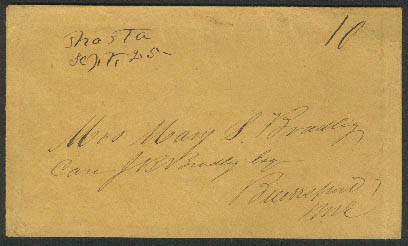 Shasta
Sept. 25
10
Mrs Mary S. Bradley
Care J B Bradley Esq
Me